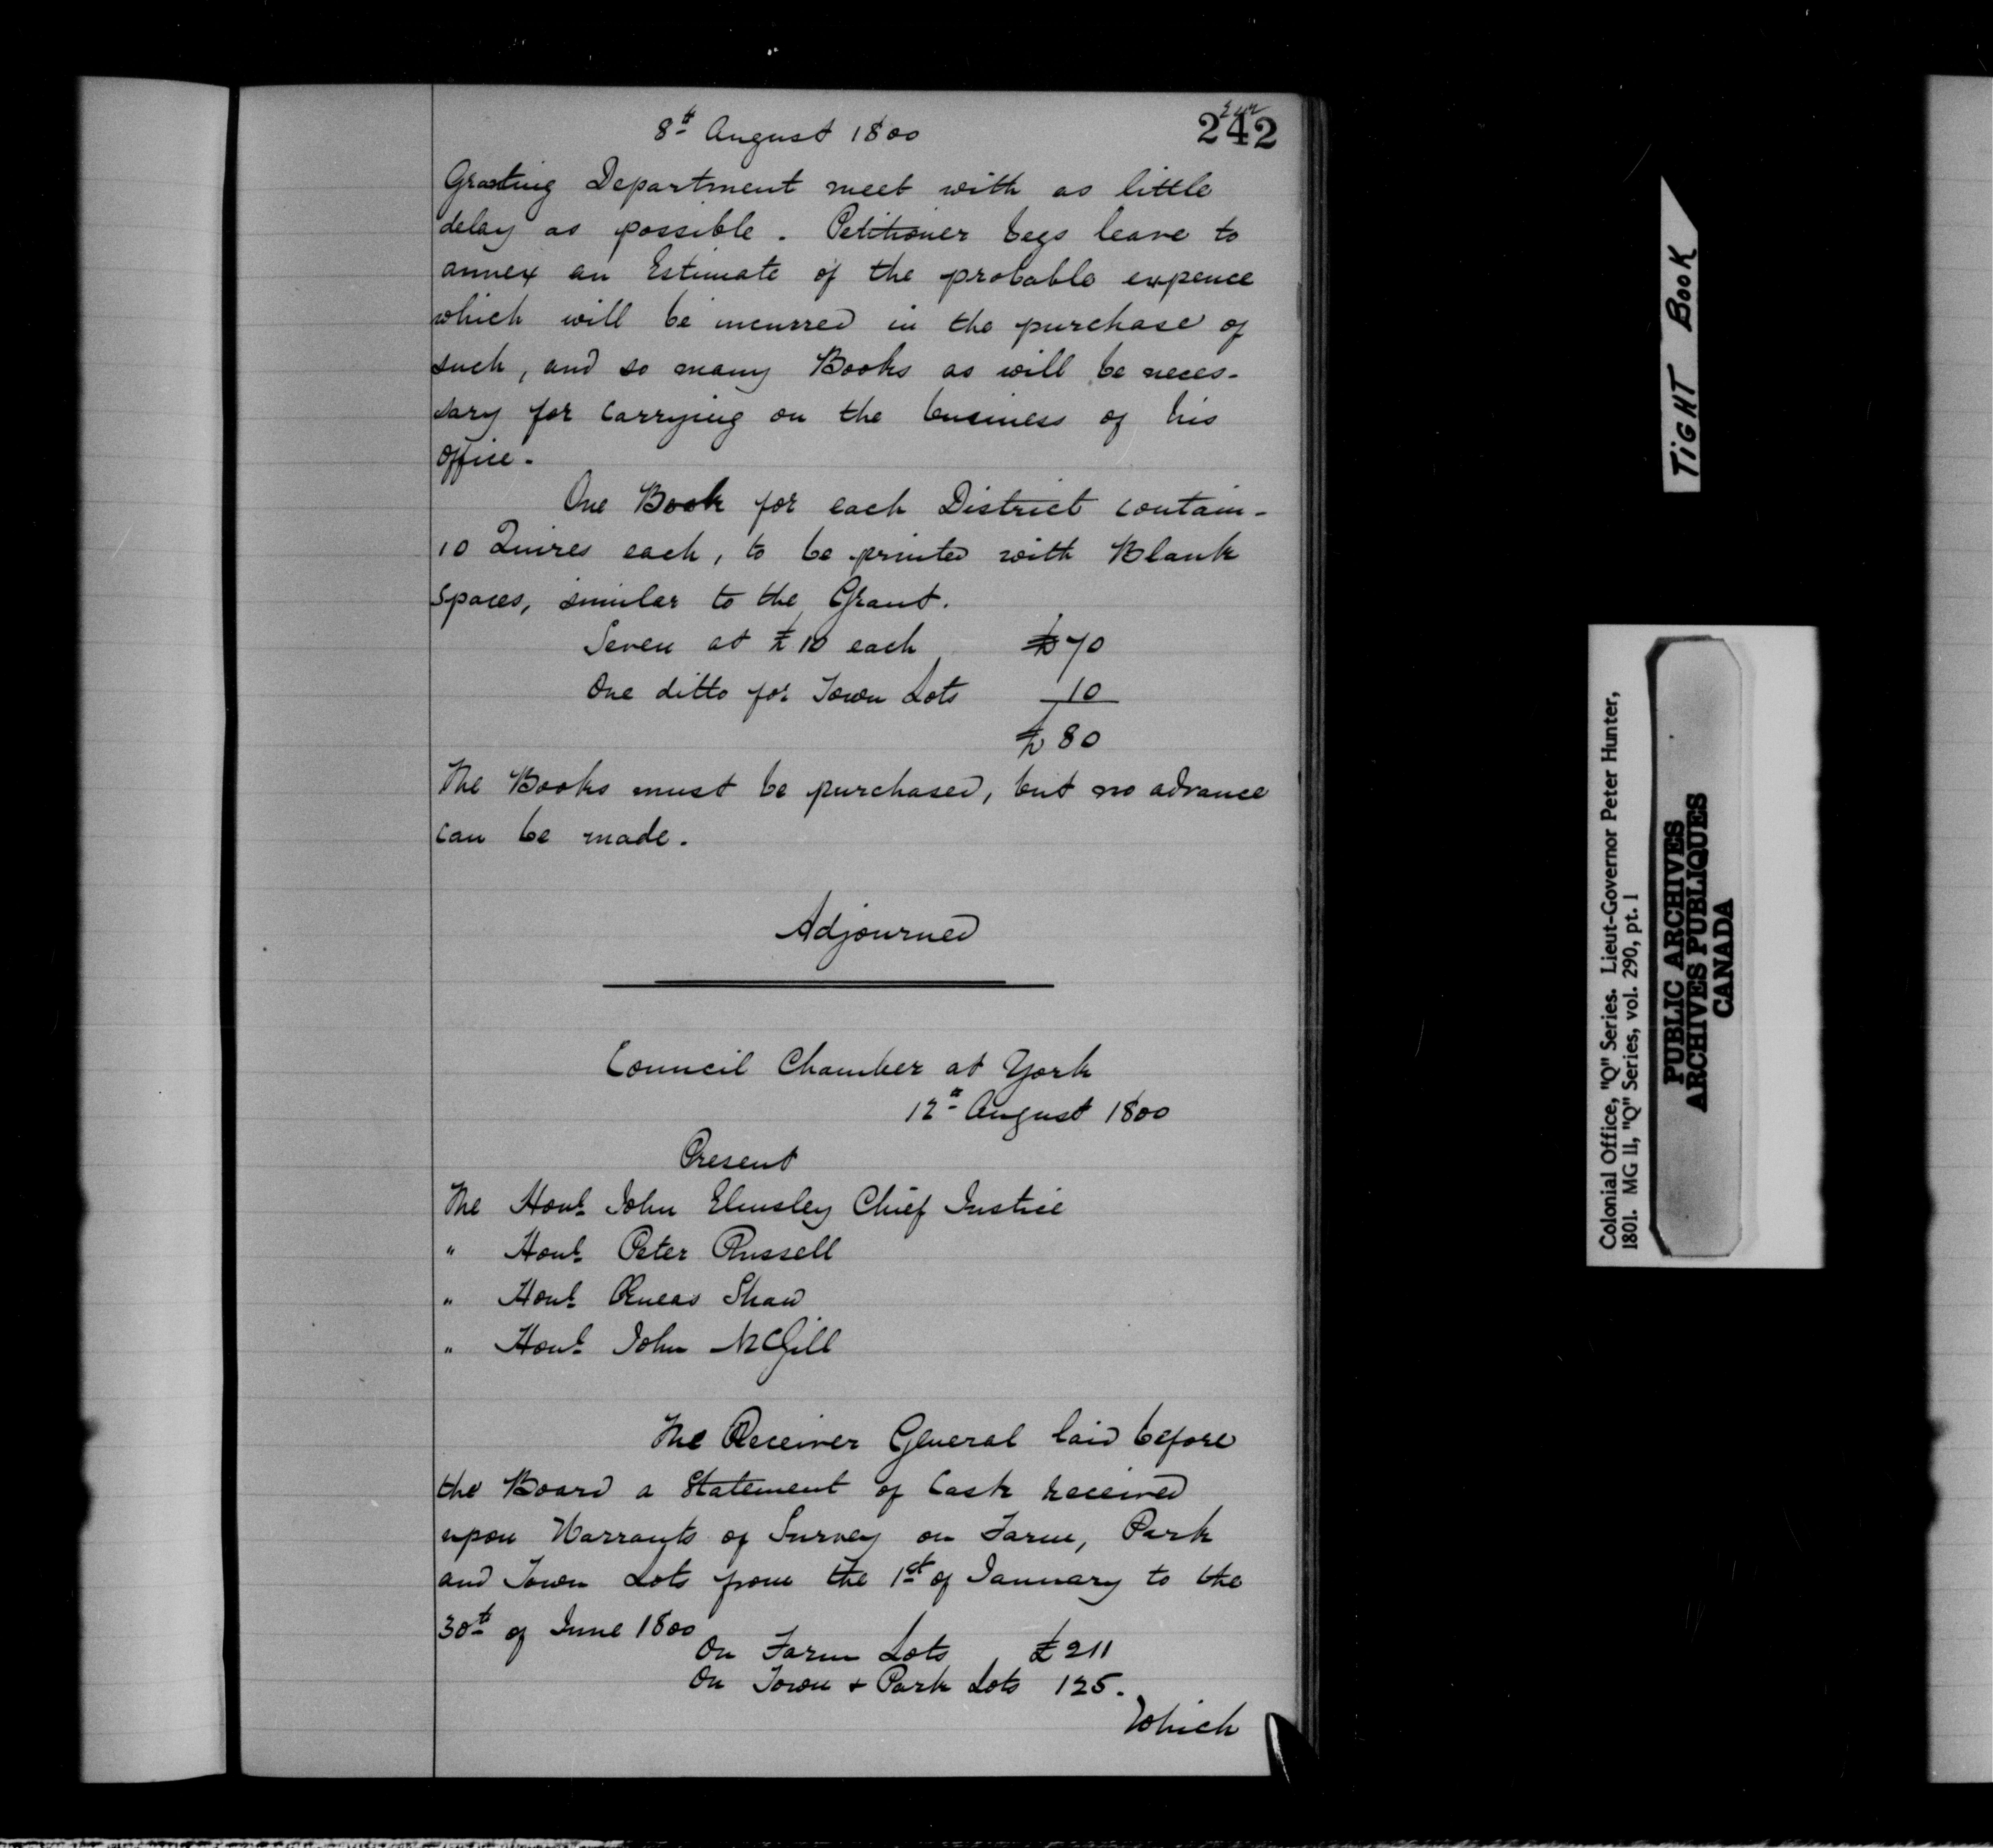 242
242
8th August 1800
Granting Department meet with as little
delay as possible. Petitioner begs leave to
annex an Estimate of the probable expence
which will be incurred in the purchase of
such, and so many Books as will be neces-
sary for carrying on the business of his
office.
One Book for each District contain-
10 Quires each, to be printed with Blank
Spaces, similar to the Grant.
Seven at £10 each £70
One ditto for Town Lots 10
£80
The Books must be purchased, but no advance
can be made.
Adjourned
Council Chamber at York
12th August 1800
Present
The Honl. John Elmsley Chief Justice
" Honl. Peter Russell
" Honl. Æneas Shaw
" Honl. John McGill
The Receiver General laid before
the Board a Statement of Cash received
upon Warrants of Survey on Farm, Park
and Town Lots from the 1st of January to the
30th of June 1800
On Farm Lots £211
On Town + Park Lots 125.
Which
TIGHT BOOK
Colonial Office, "Q" Series. Lieut-Governor Peter Hunter,
1801. MG 11, "Q" Series, vol. 290, pt. 1
PUBLIC ARCHIVES
ARCHIVES PUBLIQUES
CANADA